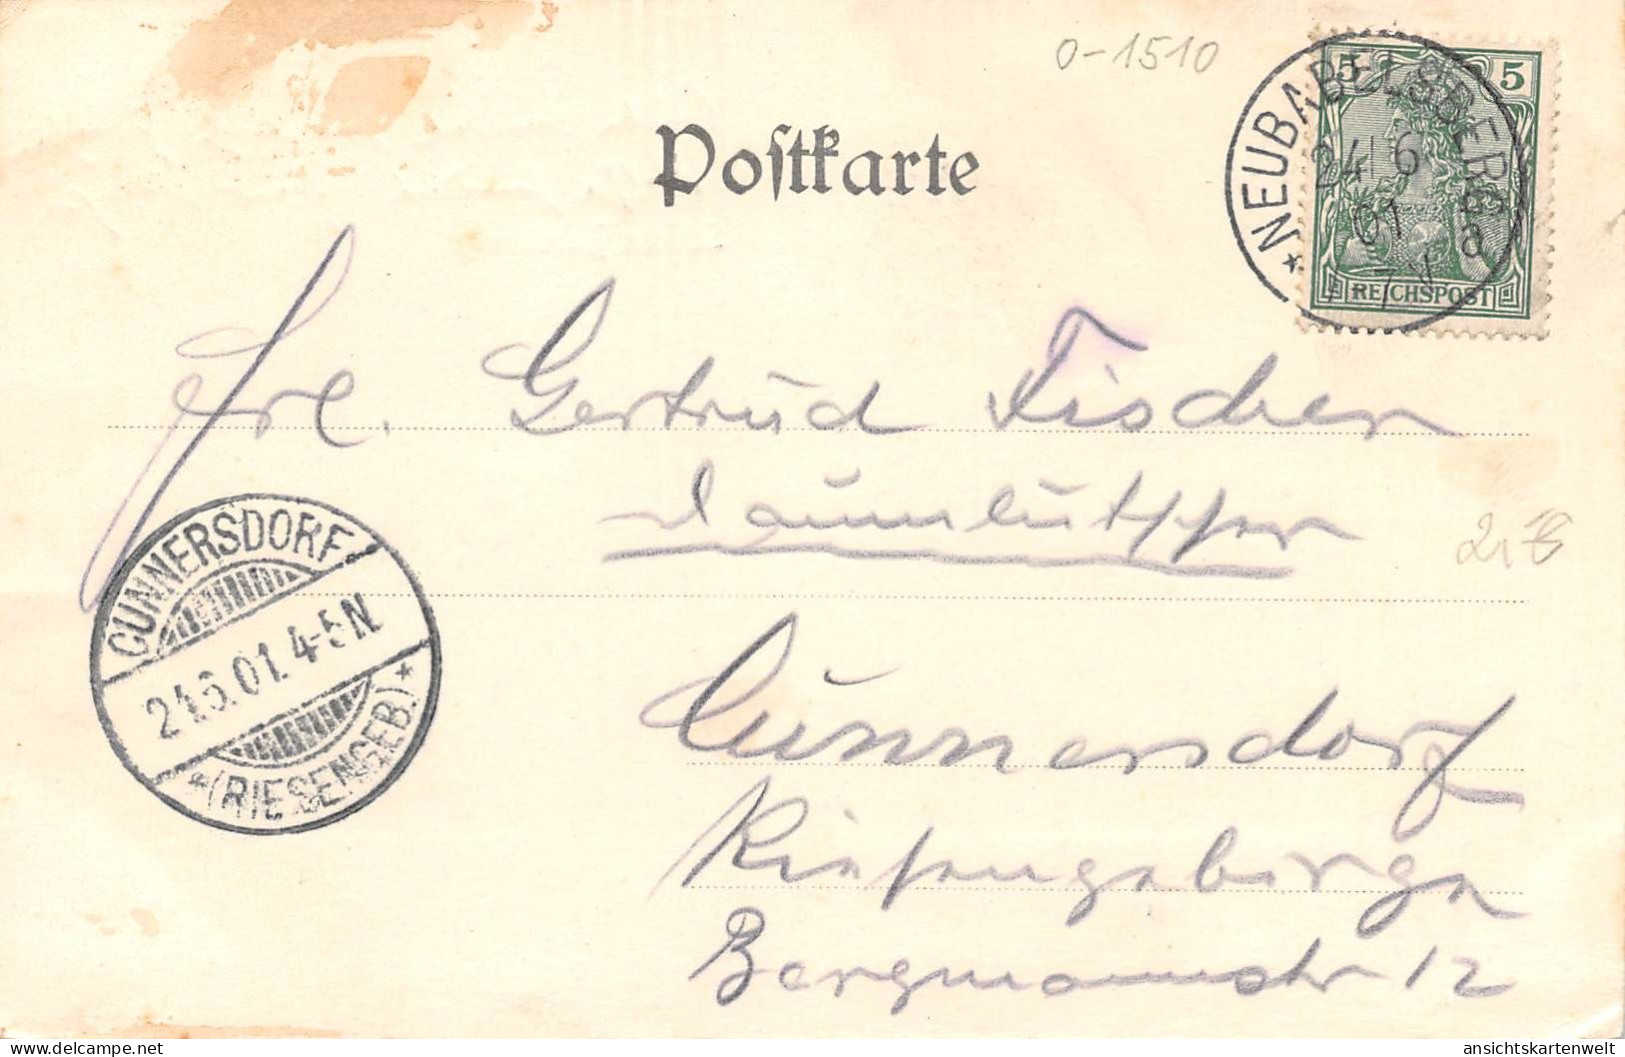 0-1510
Postkarte
5 5
REICHSPOST
* NEUBABELSBERG
24 6
01
7 V
a
Frl. Gertrud Fischer
Cunnersdorf
Riesengebirge
Bergmannstr 12
CUNNERSDORF
24.6.01. 4-5N.
* (RIESENGEB.) *
delcampe.net
ansichtskartenwelt